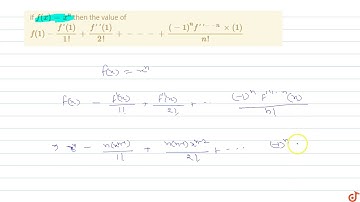 if f(x) = x^n then the value of
f(1) - f'(1)/1! + f''(1)/2! + - - - + (-1)^n f''...n × (1)/n!
f(x) = x^n
f(x) - f'(x)/1! + f''(x)/2! + ... (-1)^n f''...n (x)/n!
⇒ x^n - n(x^n-1)/1! + n(n-1)x^n-2/2! + ... (-1)^n